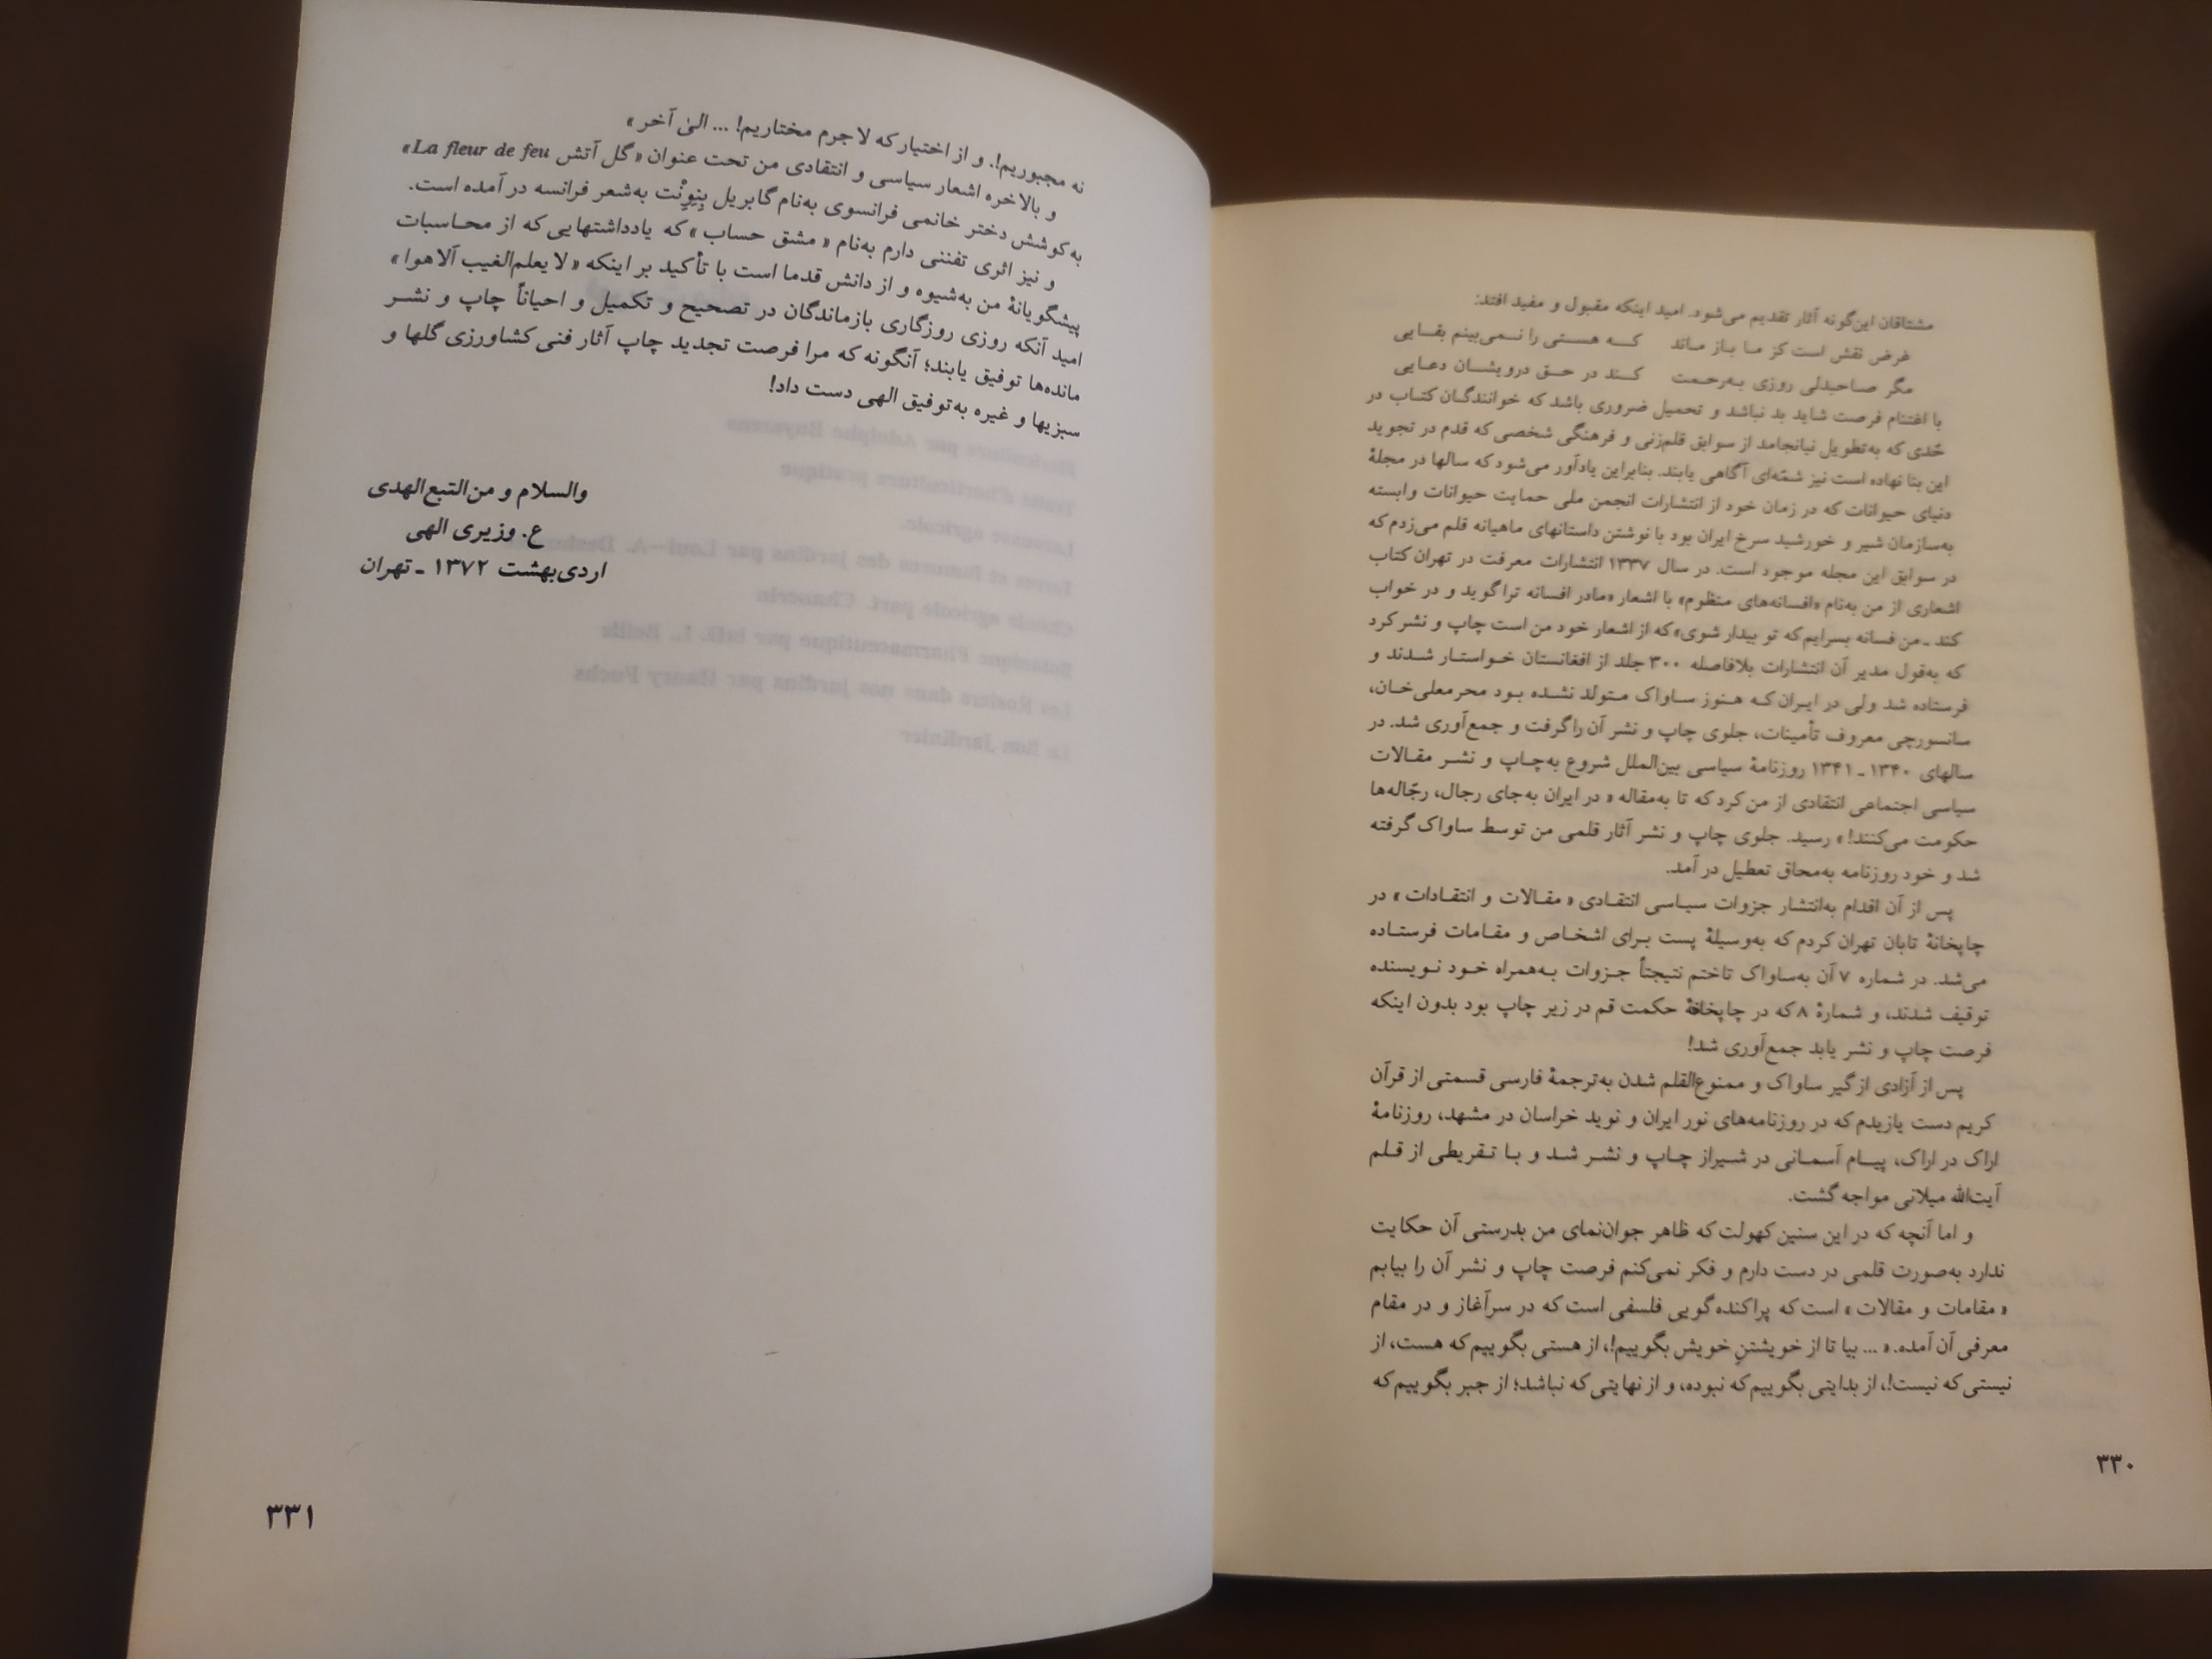 مشتاقان این‌گونه آثار تقدیم می‌شود. امید اینکه مقبول و مفید افتد:
غرض نقش است کز ما باز ماند که هستی را نمی‌بینم بقایی
مگر صاحبدلی روزی به‌رحمت کند در حق درویشان دعایی
با اغتنام فرصت شاید بد نباشد و تحمیل ضروری باشد که خوانندگان کتاب در
حّدی که به‌تطویل نیانجامد از سوابق قلم‌زنی و فرهنگی شخصی که قدم در تجوید
این بنا نهاده است نیز شمّه‌ای آگاهی یابند. بنابراین یادآور می‌شود که سالها در مجلهٔ
دنیای حیوانات که در زمان خود از انتشارات انجمن ملی حمایت حیوانات وابسته
به‌سازمان شیر و خورشید سرخ ایران بود با نوشتن داستانهای ماهیانه قلم می‌زدم که
در سوابق این مجله موجود است. در سال ۱۳۳۷ انتشارات معرفت در تهران کتاب
اشعاری از من به‌نام «افسانه‌های منظوم» با اشعار «مادر افسانه ترا گوید و در خواب
کند ـ من فسانه بسرایم که تو بیدار شوی» که از اشعار خود من است چاپ و نشر کرد
که به‌قول مدیر آن انتشارات بلافاصله ۳۰۰ جلد از افغانستان خواستار شدند و
فرستاده شد ولی در ایران که هنوز ساواک متولد نشده بود محرمعلی‌خان،
سانسورچی معروف تأمینات، جلوی چاپ و نشر آن را گرفت و جمع‌آوری شد. در
سالهای ۱۳۴۰ ـ ۱۳۴۱ روزنامهٔ سیاسی بین‌الملل شروع به‌چاپ و نشر مقالات
سیاسی اجتماعی انتقادی از من کرد که تا به‌مقاله « در ایران به‌جای رجال، رجّاله‌ها
حکومت می‌کنند! » رسید. جلوی چاپ و نشر آثار قلمی من توسط ساواک گرفته
شد و خود روزنامه به‌محاق تعطیل در آمد.
پس از آن اقدام به‌انتشار جزوات سیاسی انتقادی « مقالات و انتقادات » در
چاپخانهٔ تابان تهران کردم که به‌وسیلهٔ پست برای اشخاص و مقامات فرستاده
می‌شد. در شماره ۷ آن به‌ساواک تاختم نتیجتاً جزوات به‌همراه خود نویسنده
توقیف شدند، و شمارهٔ ۸ که در چاپخانهٔ حکمت قم در زیر چاپ بود بدون اینکه
فرصت چاپ و نشر یابد جمع‌آوری شد!
پس از آزادی از گیر ساواک و ممنوع‌القلم شدن به‌ترجمهٔ فارسی قسمتی از قرآن
کریم دست یازیدم که در روزنامه‌های نور ایران و نوید خراسان در مشهد، روزنامهٔ
اراک در اراک، پیام آسمانی در شیراز چاپ و نشر شد و با تقریظی از قلم
آیت‌الله میلانی مواجه گشت.
و اما آنچه که در این سنین کهولت که ظاهر جوان‌نمای من بدرستی آن حکایت
ندارد به‌صورت قلمی در دست دارم و فکر نمی‌کنم فرصت چاپ و نشر آن را بیابم
« مقامات و مقالات » است که پراکنده‌گویی فلسفی است که در سرآغاز و در مقام
معرفی آن آمده. « ... بیا تا از خویشتنِ خویش بگوییم!، از هستی بگوییم که هست، از
نیستی که نیست!، از بدایتی بگوییم که نبوده، و از نهایتی که نباشد؛ از جبر بگوییم که
۳۳۰
نه مجبوریم!. و از اختیار که لاجرم مختاریم! ... الیٰ آخر »
و بالاخره اشعار سیاسی و انتقادی من تحت عنوان « گل آتش La fleur de feu »
به‌کوشش دختر خانمی فرانسوی به‌نام گابریل بِنِوِنْت به‌شعر فرانسه در آمده است.
و نیز اثری تفننی دارم به‌نام « مشق حساب » که یادداشتهایی که از محاسبات
پیشگویانهٔ من به‌شیوه و از دانش قدما است با تأکید بر اینکه « لا یعلم‌الغیب آلا‌هوا »
امید آنکه روزی روزگاری بازماندگان در تصحیح و تکمیل و احیاناً چاپ و نشر
مانده‌ها توفیق یابند؛ آنگونه که مرا فرصت تجدید چاپ آثار فنی کشاورزی گلها و
سبزیها و غیره به‌توفیق الهی دست داد!
والسلام و من‌التبع‌الهدی
ع. وزیری الهی
اردی‌بهشت ۱۳۷۲ ـ تهران
۳۳۱